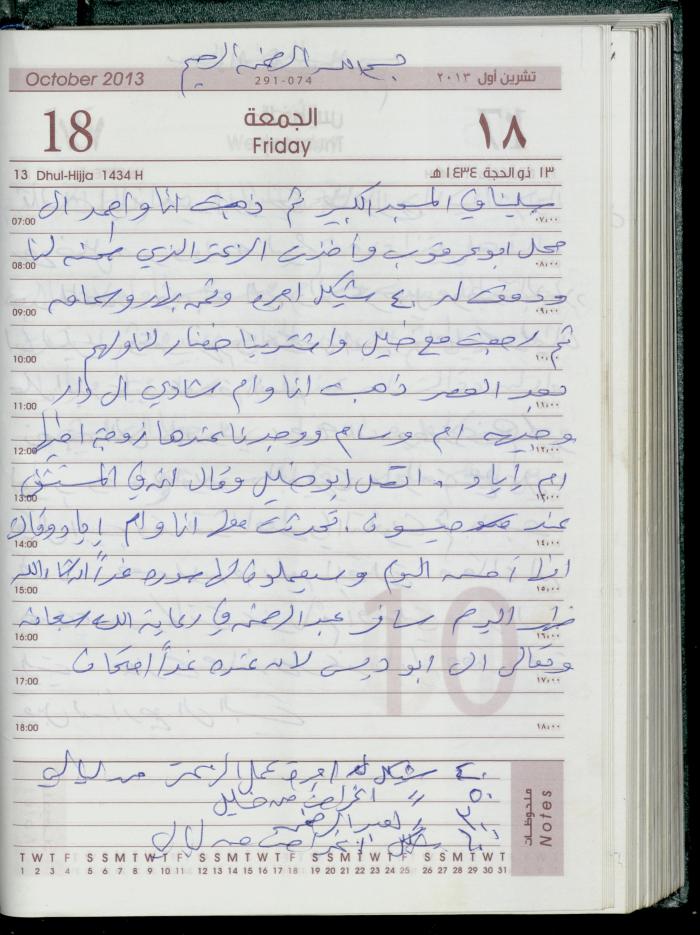 بسم الله الرحمن الرحيم
October 2013
291-074
تشرين أول ٢٠١٣
18
الجمعة
Friday
١٨
13 Dhul-Hijja 1434 H
١٣ ذو الحجة ١٤٣٤ هـ
صلينا في المسجد الكبير ثم ذهبت انا واحمد الى
07:00 ٠٧:٠٠
محل ابو عرقوب وأخذت الزعتر الذي طحنه لنا
08:00 ٠٨:٠٠
ودفعت له ٤٠ شيكل اجرة وثمن
09:00 ٠٩:٠٠
ثم رجعت مع خليل واشترينا خضار لنا ولهم
10:00 ١٠:٠٠
بعد العصر ذهبت انا وام شادي الى دار
11:00 ١١:٠٠
وجيهه ام وسام ووجدنا عندها زوجة
12:00 ١٢:٠٠
ام اياد . اتصل ابو خليل وقال انه في المستشفى
13:00 ١٣:٠٠
عند ميسون . تحدثت معها انا وام اياد وقالت
14:00 ١٤:٠٠
انها أحسن اليوم وسيعملون لها صورة غداً ان شاء الله
15:00 ١٥:٠٠
ظهر اليوم سافر عبد الرحمن في رعاية الله سبحانه
16:00 ١٦:٠٠
وتعالى الى ابو ديس لان عنده غداً امتحان
17:00 ١٧:٠٠
18:00 ١٨:٠٠
10
٤٠ شيكل اجرة عمل الزعتر من ليالي
٥٠ " اغراض من خليل
" لعبد الرحمن
شيكل اغراض من ليالي
ملحوظات
Notes
T W T F S S M T W T F S S M T W T F S S M T W T F S S M T W T
1 2 3 4 5 6 7 8 9 10 11 12 13 14 15 16 17 18 19 20 21 22 23 24 25 26 27 28 29 30 31